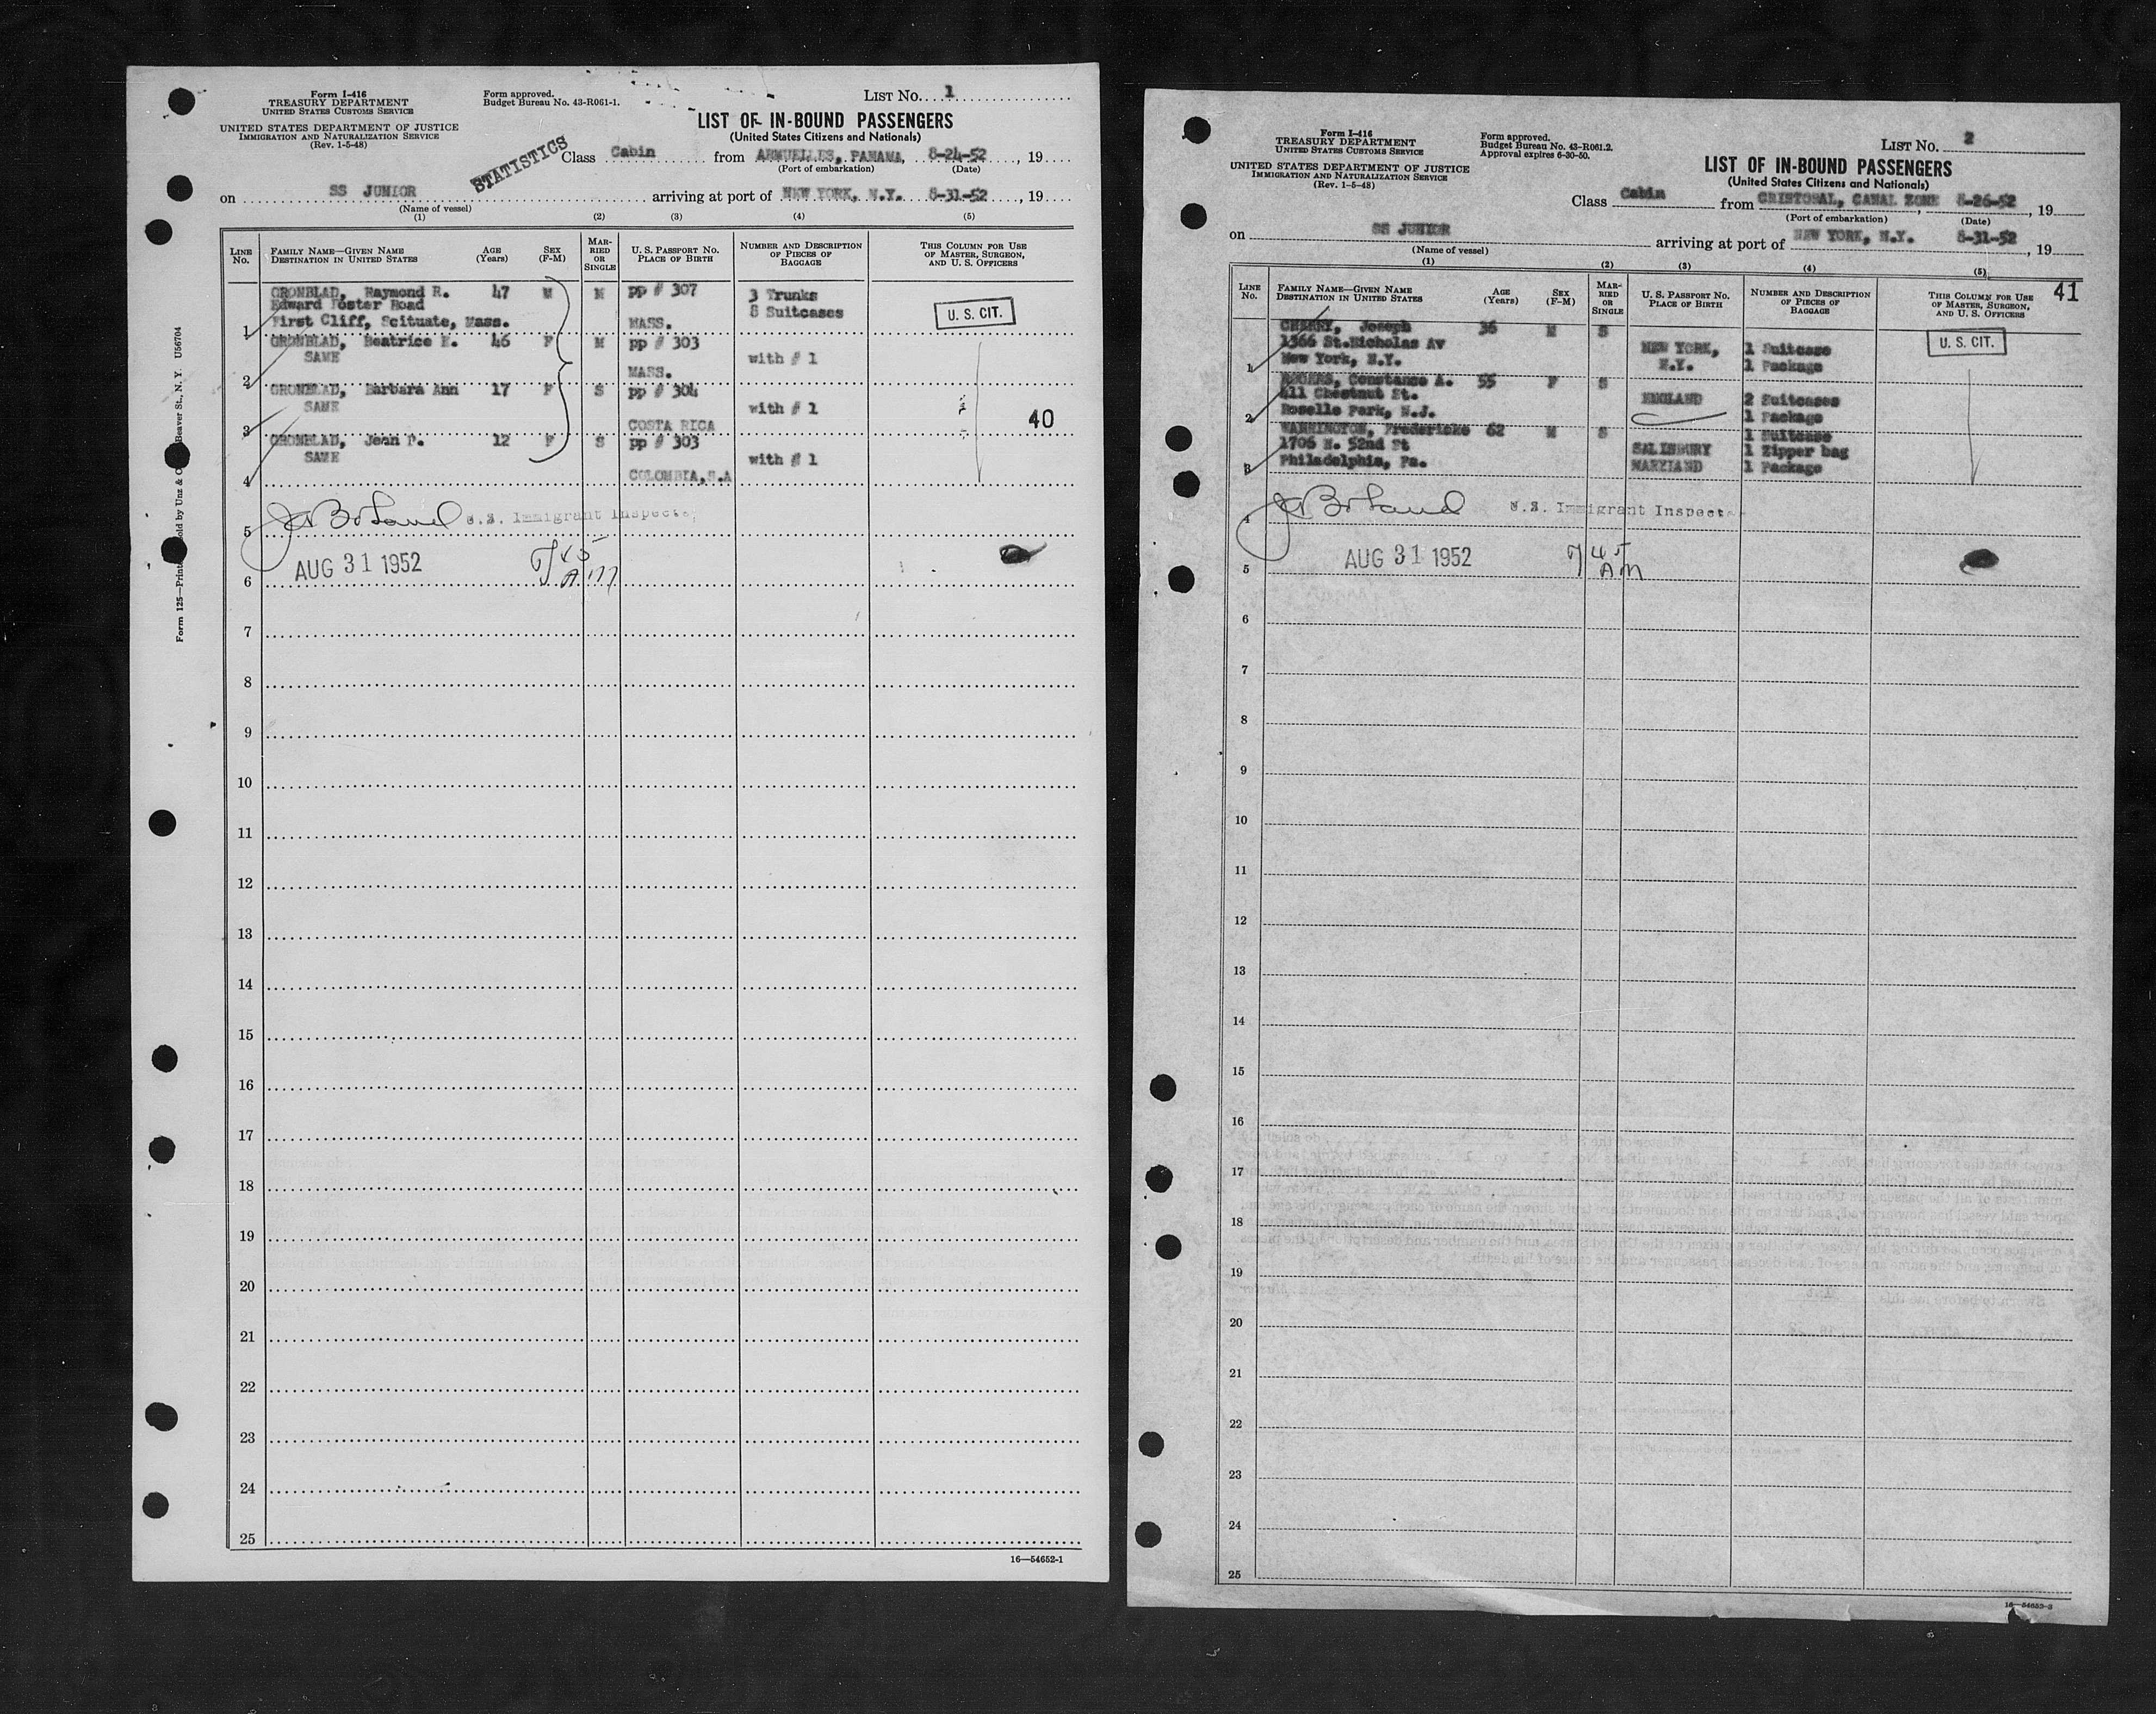 Form I-416
TREASURY DEPARTMENT
UNITED STATES CUSTOMS SERVICE
UNITED STATES DEPARTMENT OF JUSTICE
IMMIGRATION AND NATURALIZATION SERVICE
(Rev. 1-5-48)
Form approved.
Budget Bureau No. 43-R061-1.
LIST No. 1
LIST OF IN-BOUND PASSENGERS
(United States Citizens and Nationals)
STATISTICS
Class Cabin from ARMUELLES, PANAMA, 8-24-52, 19
(Port of embarkation) (Date)
on SS JUNIOR arriving at port of NEW YORK, N.Y. 8-31-52, 19
(Name of vessel)
(1) (2) (3) (4) (5)
LINE No. FAMILY NAME—GIVEN NAME DESTINATION IN UNITED STATES AGE (Years) SEX (F-M) MARRIED OR SINGLE U. S. PASSPORT No. PLACE OF BIRTH NUMBER AND DESCRIPTION OF PIECES OF BAGGAGE THIS COLUMN FOR USE OF MASTER, SURGEON, AND U. S. OFFICERS
GRONBLAD, Raymond R. 47 M M pp # 307 3 Trunks
Edward Foster Road 8 Suitcases
U. S. CIT.
1 First Cliff, Scituate, Mass. MASS.
GRONBLAD, Beatrice E. 46 F M pp # 303
SAME with # 1
2 MASS.
GRONBLAD, Barbara Ann 17 F S pp # 304
SAME with # 1
40
3 COSTA RICA
GRONBLAD, Jean P. 12 F S pp # 303
SAME with # 1
4 COLOMBIA, S.A
5 U.S. Immigrant Inspector
6 AUG 31 1952 45 AM
7
8
9
10
11
12
13
14
15
16
17
18
19
20
21
22
23
24
25
16—54652-1
Beaver St., N. Y. U56704
Form 125—
Form I-416
TREASURY DEPARTMENT
UNITED STATES CUSTOMS SERVICE
UNITED STATES DEPARTMENT OF JUSTICE
IMMIGRATION AND NATURALIZATION SERVICE
(Rev. 1-5-48)
Form approved.
Budget Bureau No. 43-R061.2.
Approval expires 6-30-50.
LIST No. 2
LIST OF IN-BOUND PASSENGERS
(United States Citizens and Nationals)
Class Cabin from CRISTOBAL, CANAL ZONE, 8-26-52, 19
(Port of embarkation) (Date)
on SS JUNIOR arriving at port of NEW YORK, N.Y. 8-31-52, 19
(Name of vessel)
(1) (2) (3) (4) (5)
LINE No. FAMILY NAME—GIVEN NAME DESTINATION IN UNITED STATES AGE (Years) SEX (F-M) MARRIED OR SINGLE U. S. PASSPORT No. PLACE OF BIRTH NUMBER AND DESCRIPTION OF PIECES OF BAGGAGE THIS COLUMN FOR USE OF MASTER, SURGEON, AND U. S. OFFICERS
41
CHERRY, Joseph 36 M S
1366 St.Nicholas Av NEW YORK, 1 Suitcase
U. S. CIT.
1 New York, N.Y. N.Y. 1 Package
Constance A. 55 F S
411 Chestnut St. ENGLAND 2 Suitcases
2 Roselle Park, N.J. 1 Package
WARRINGTON, Fredericke 62 M S 1 Suitcase
1706 N. 52nd St SALISBURY 1 Zipper bag
3 Philadelphia, Pa. MARYLAND 1 Package
4 U.S. Immigrant Inspector
5 AUG 31 1952 45 AM
6
7
8
9
10
11
12
13
14
15
16
17
18
19
20
21
22
23
24
25